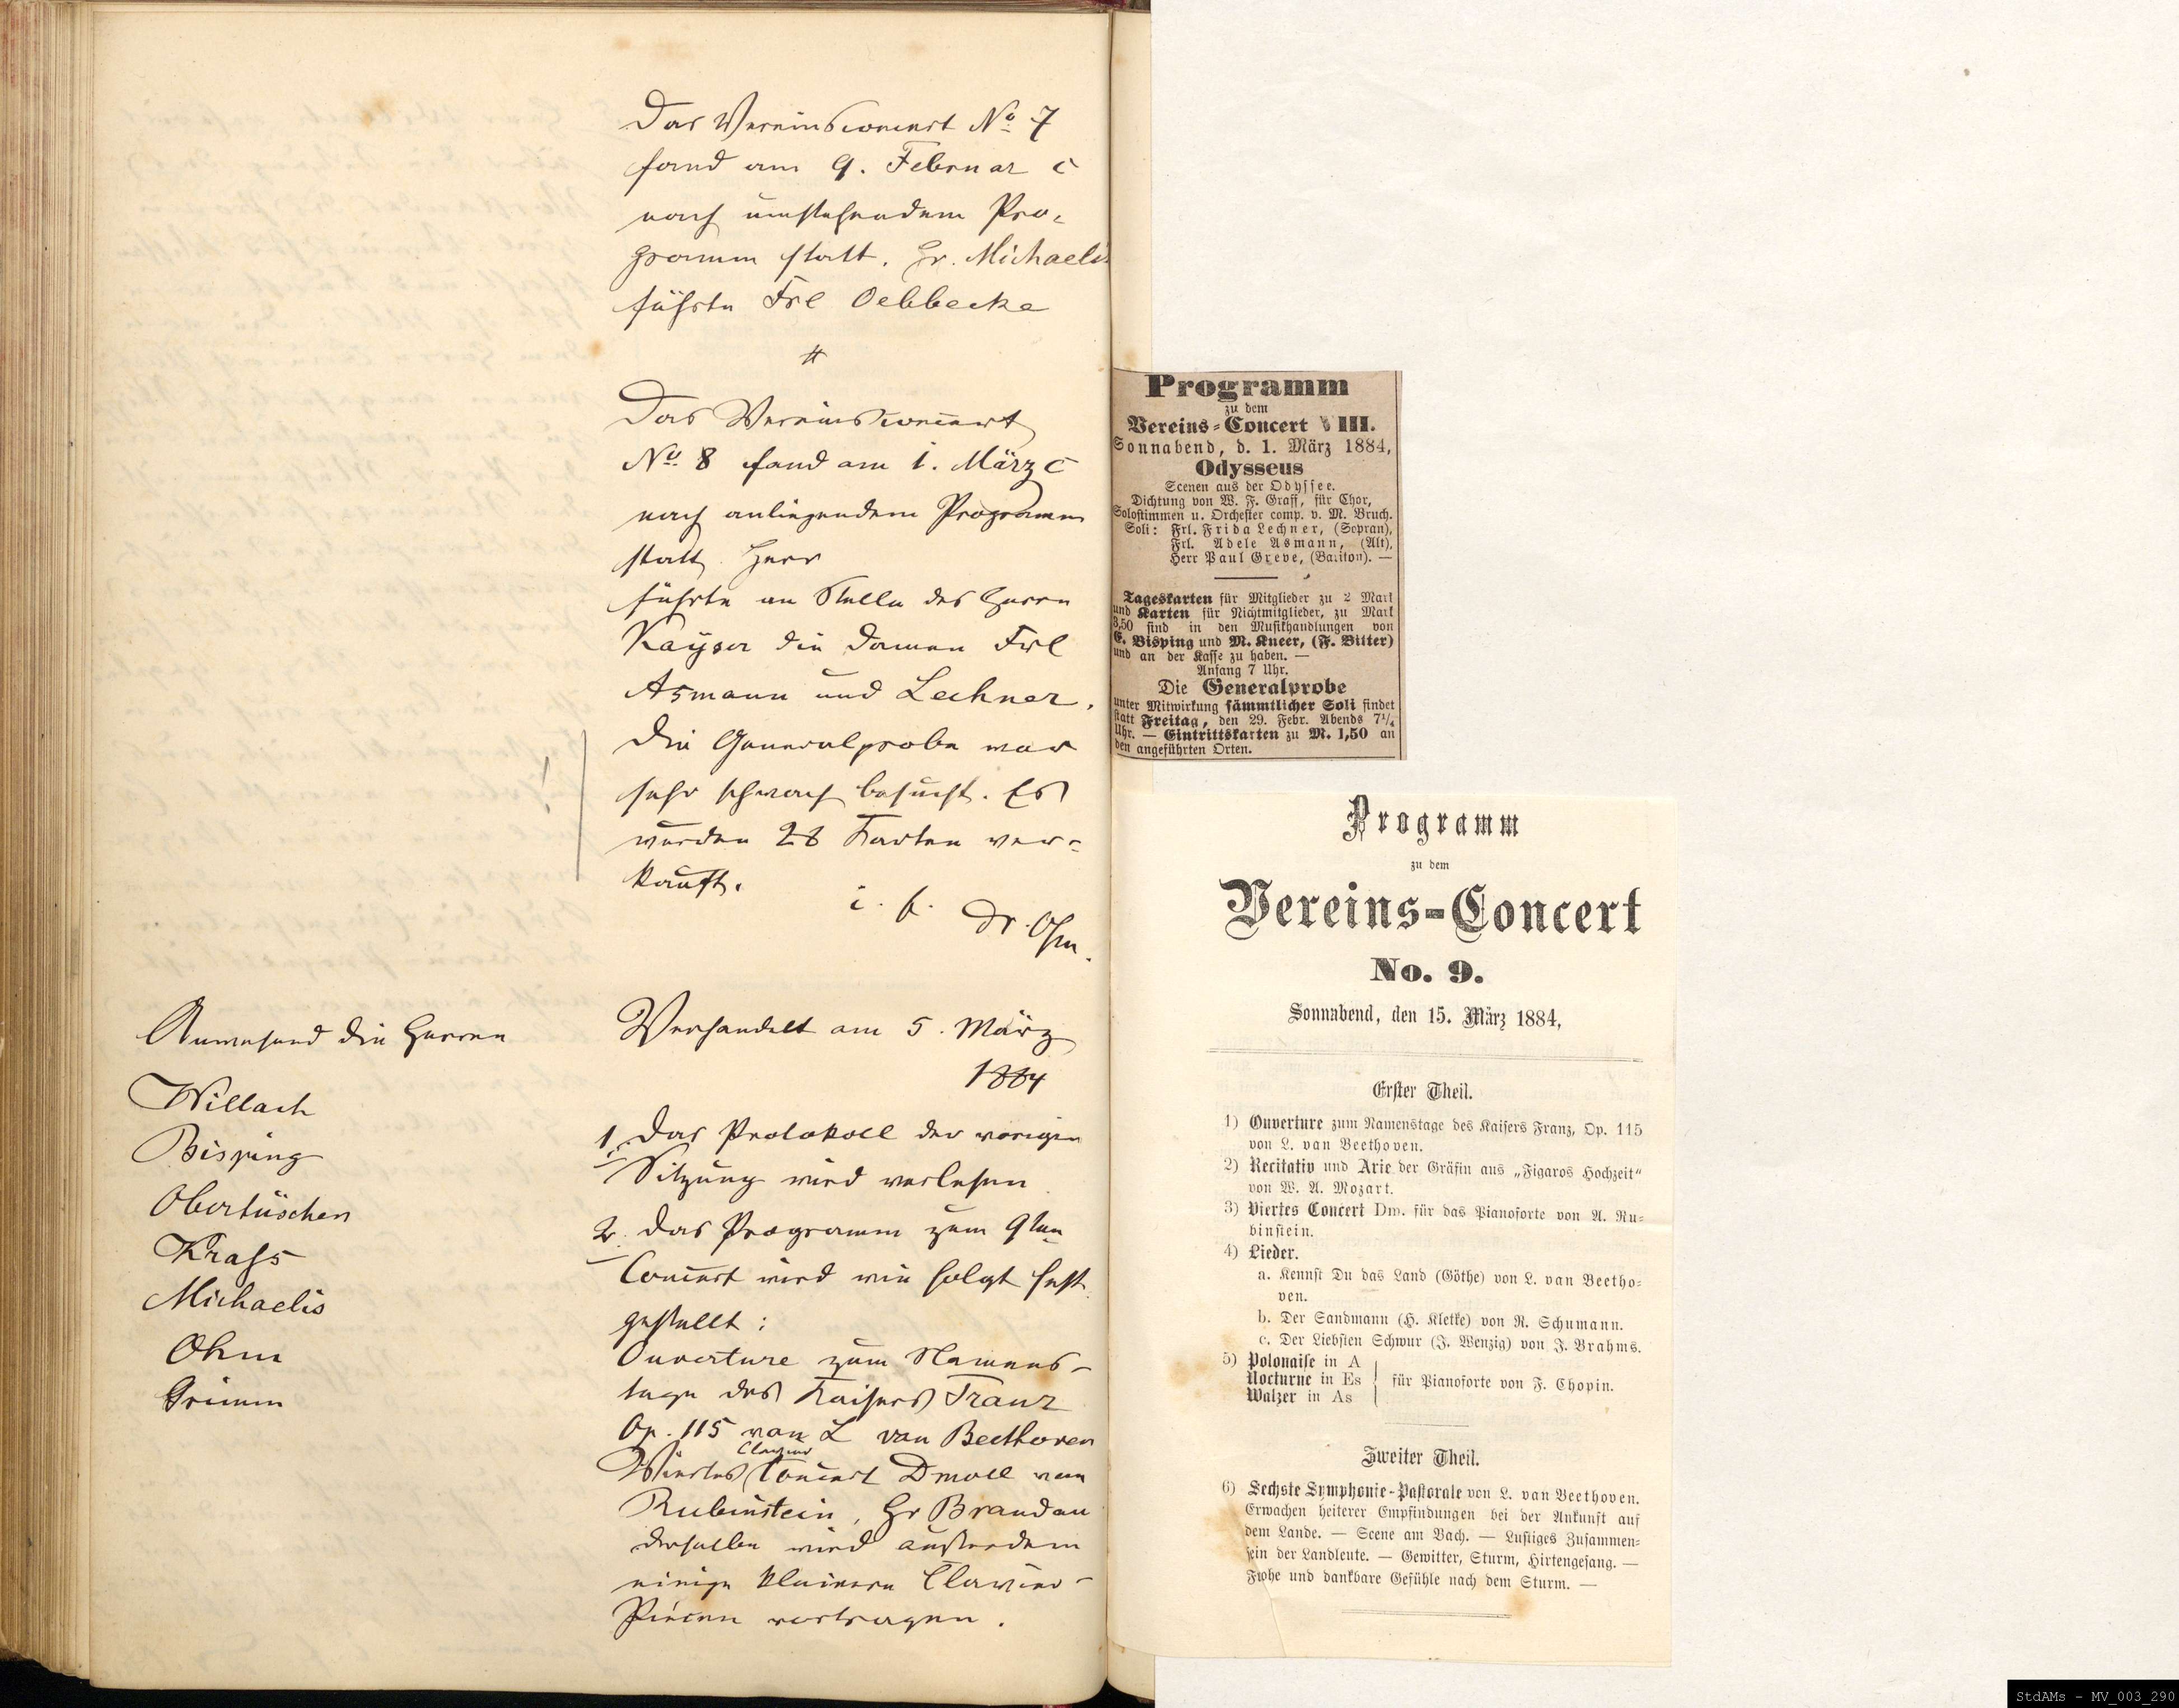 Das Vereinsconcert No 7
fand am 9. Februar c
nach umstehendem Pro-
gramm statt. Hr. Michaelis
führte Frl Oebbecke
#
Das Vereinsconcert
No. 8 fand am 1. März c
nach anliegendem Programm
statt. Herr
führte an Stelle des Herrn
Kayser die Damen Frl
Asmann und Lechner.
Die Generalprobe war
sehr schwach besucht. Es
wurden 28 Karten ver-
kauft.
! 
i. f. Dr. Ohm.
Anwesend die Herren
Willach
Bisping
Obertüschen
Krass
Michaelis
Ohm
Grimm
Verhandelt am 5. März
1884
1. Das Protokoll der vorigen
Sitzung wird verlesen
2. Das Programm zum 9ten
Concert wird wie folgt fest
gestellt:
Ouverture zum Namens-
tage des Kaisers Franz
Op. 115 von L van Beethoven
Clavier
Viertes Concert Dmoll von
Rubinstein, Hr Brandau
derselbe wird ausserdem
einige kleinere Clavier-
Piècen vortragen.
Programm
zu dem
Vereins-Concert VIII.
Sonnabend, d. 1. März 1884,
Odysseus
Scenen aus der Odyssee.
Dichtung von W. F. Graff, für Chor,
Solostimmen u. Orchester comp. v. M. Bruch.
Soli: Frl. Frida Lechner, (Sopran),
Frl. Adele Asmann, (Alt),
Herr Paul Greve, (Bariton). —
Tageskarten für Mitglieder zu 2 Mark
und Karten für Nichtmitglieder, zu Mark
3,50 sind in den Musikhandlungen von
E. Bisping und M. Kneer, (F. Bitter)
und an der Kasse zu haben. —
Anfang 7 Uhr.
Die Generalprobe
unter Mitwirkung sämmtlicher Soli findet
statt Freitag, den 29. Febr. Abends 7¼
Uhr. — Eintrittskarten zu M. 1,50 an
den angeführten Orten.
Programm
zu dem
Vereins-Concert
No. 9.
Sonnabend, den 15. März 1884,
Erster Theil.
1) Ouverture zum Namenstage des Kaisers Franz, Op. 115
von L. van Beethoven.
2) Recitativ und Arie der Gräfin aus „Figaros Hochzeit"
von W. A. Mozart.
3) Viertes Concert Dm. für das Pianoforte von A. Ru-
binstein.
4) Lieder.
a. Kennst Du das Land (Göthe) von L. van Beetho-
ven.
b. Der Sandmann (H. Kletke) von R. Schumann.
c. Der Liebsten Schwur (J. Wenzig) von J. Brahms.
5) Polonaise in A
Nocturne in Es } für Pianoforte von F. Chopin.
Walzer in As
Zweiter Theil.
6) Sechste Symphonie-Pastorale von L. van Beethoven.
Erwachen heiterer Empfindungen bei der Ankunft auf
dem Lande. — Scene am Bach. — Lustiges Zusammen-
sein der Landleute. — Gewitter, Sturm, Hirtengesang. —
Frohe und dankbare Gefühle nach dem Sturm. —
StdAMs - MV_003_290